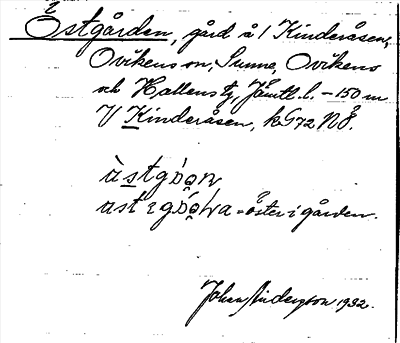 Östgården, gård å 1 Kinderåsen,
Ovikens sn, Sunne, Ovikens
och Hallens tg, Jämtl. l. – 150 m
V Kinderåsen, kG72NÖ.
östigården.
= öster i gården.
Johan Andersson 1932.